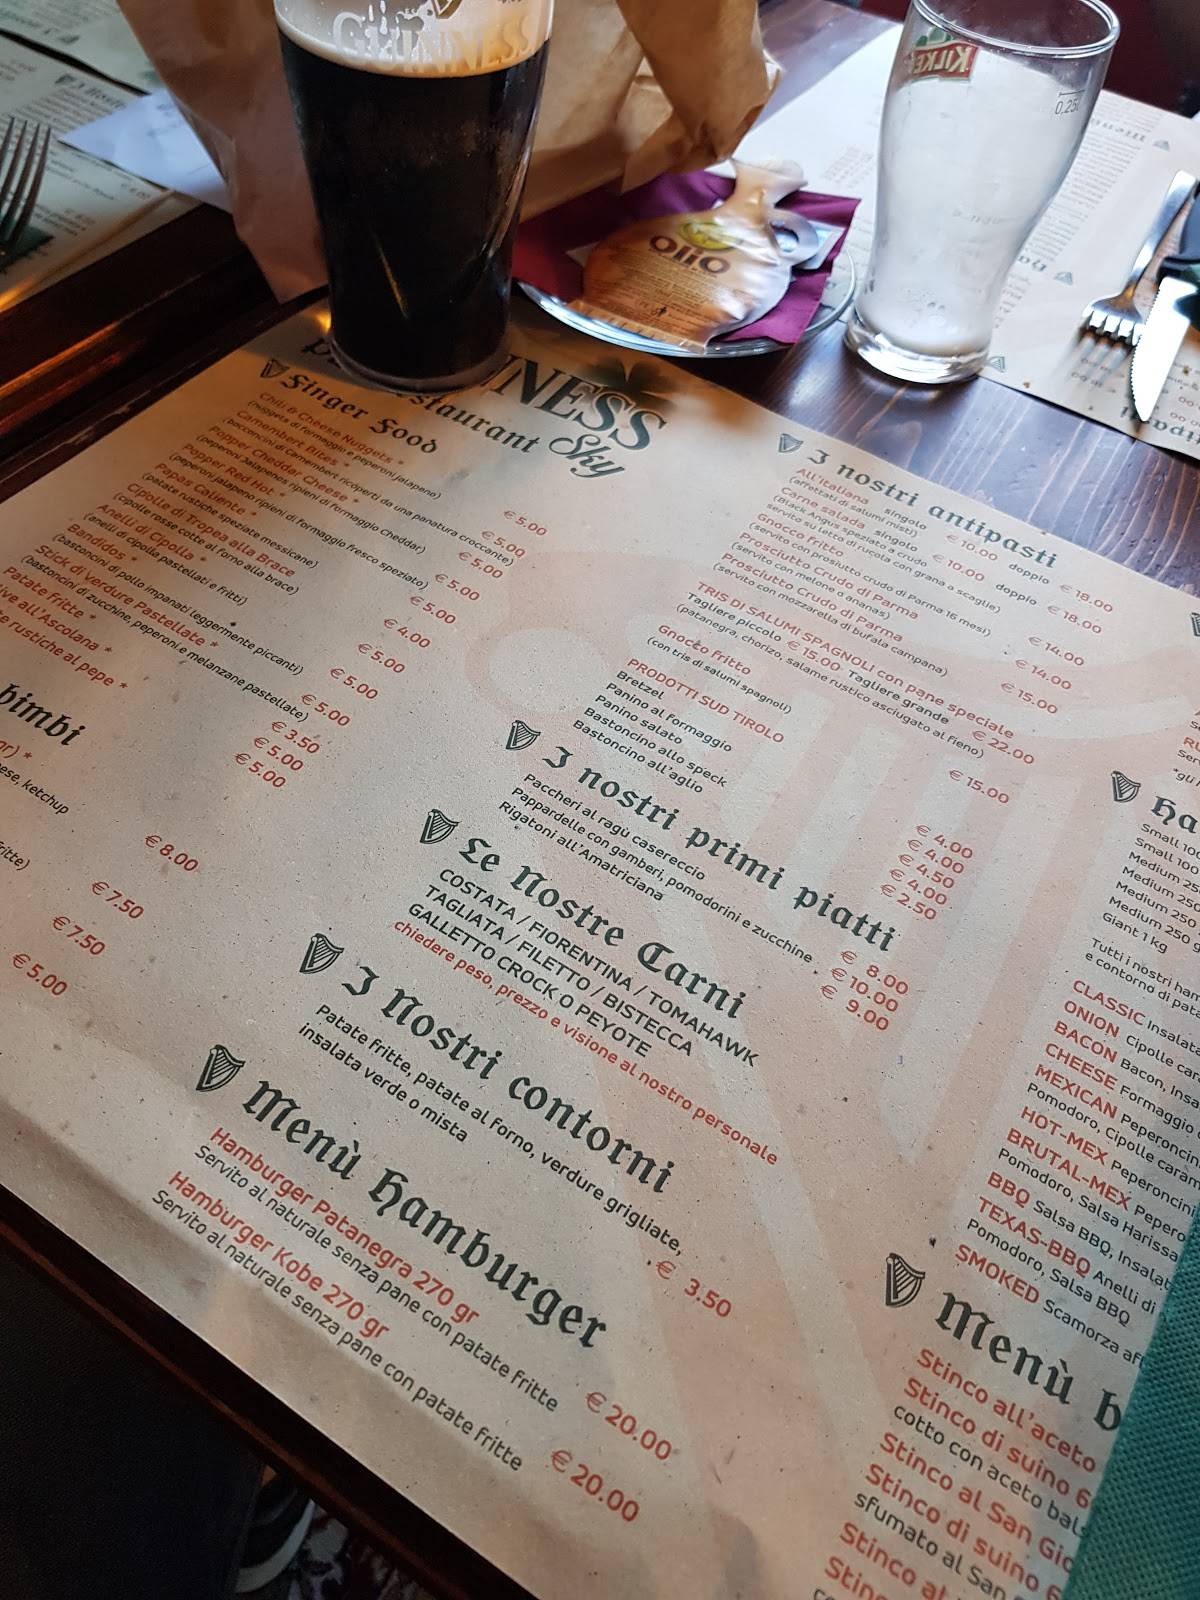 GUINNESS
KILKE
0,25
OLIO
NNESS
staurant Sky
Finger Food
Chili & Cheese Nuggets *
(nuggets di formaggio e peperoni jalapeno)
€ 5.00
Camembert Bites *
(bocconcini di Camembert ricoperti da una panatura croccante)
€ 5.00
Popper Cheddar Cheese *
(peperoni Jalapenos ripieni di formaggio cheddar)
€ 5.00
Popper Red Hot *
(peperoni jalapeno ripieni di formaggio fresco speziato)
€ 5.00
Papas Caliente *
(patate rustiche speziate messicane)
€ 5.00
Cipolle di Tropea alla Brace
(cipolle rosse cotte al forno alla brace)
€ 4.00
Anelli di Cipolla *
(anelli di cipolla pastellati e fritti)
€ 5.00
Bandidos *
(bastoncini di pollo impanati leggermente piccanti)
€ 5.00
Stick di verdure Pastellate *
(bastoncini di zucchine, peperoni e melanzane pastellate)
€ 5.00
Patate fritte *
€ 3.50
ive all'Ascolana *
€ 5.00
te rustiche al pepe *
€ 5.00
bimbi
gr) *
ese, ketchup
€ 8.00
fritte)
€ 7.50
€ 7.50
€ 5.00
I nostri antipasti
All'italiana
(affettati di salumi misti)
singolo € 10.00 doppio € 18.00
Carne salada
(Black Angus speziato a crudo
servito su letto di rucola con grana a scaglie)
singolo € 10.00 doppio € 18.00
Gnocco fritto
(servito con prosciutto crudo di Parma 16 mesi)
€ 14.00
Prosciutto Crudo di Parma
(servito con melone o ananas)
€ 14.00
Prosciutto Crudo di Parma
(servito con mozzarella di bufala campana)
€ 15.00
TRIS DI SALUMI SPAGNOLI con pane speciale
Tagliere piccolo € 15.00 Tagliere grande € 22.00
(patanegra, chorizo, salame rustico asciugato al fieno)
Gnocco fritto
(con tris di salumi spagnoli)
€ 15.00
PRODOTTI SUD TIROLO
Bretzel € 4.00
Panino al formaggio € 4.00
Panino salato € 4.50
Bastoncino allo speck € 4.00
Bastoncino all'aglio € 2.50
I nostri primi piatti
Paccheri al ragù casereccio € 8.00
Pappardelle con gamberi, pomodorini e zucchine € 10.00
Rigatoni all'Amatriciana € 9.00
Le Nostre Carni
COSTATA / FIORENTINA / TOMAHAWK
TAGLIATA / FILETTO / BISTECCA
GALLETTO CROCK O PEYOTE
chiedere peso, prezzo e visione al nostro personale
I Nostri contorni
Patate fritte, patate al forno, verdure grigliate,
insalata verde o mista
€ 3.50
Menù Hamburger
Hamburger Patanegra 270 gr
Servito al naturale senza pane con patate fritte
€ 20.00
Hamburger Kobe 270 gr
Servito al naturale senza pane con patate fritte
€ 20.00
Ha
Small 100
Small 100
Medium 25
Medium 250
Medium 250
Medium 250 g
Giant 1 kg
Tutti i nostri ham
e contorno di pata
CLASSIC Insalata
ONION Cipolle car
BACON Bacon, Insa
CHEESE Formaggio
MEXICAN Peperoncin
Pomodoro, Cipolle caram
HOT-MEX Peperoncini
BRUTAL-MEX Pepero
Pomodoro, Salsa Harissa
BBQ Salsa BBQ, Insalat
TEXAS-BBQ Anelli di
Pomodoro, Salsa BBQ
SMOKED Scamorza aff
Menù b
Stinco all'aceto
Stinco di suino 6
cotto con aceto bals
Stinco al San Gio
Stinco di suino 6
sfumato al San
Stinco al
Stinc